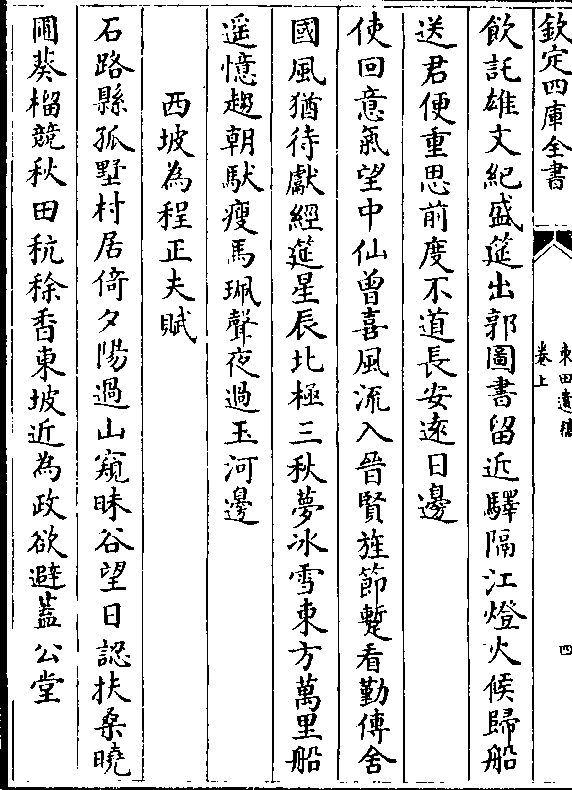 欽定四庫全書
東田遺稿
卷上
四
飲託雄文紀盛筵出郭圖書留近驛隔江燈火候歸船
送君便重思前度不道長安遠日邊
使回意氣望中仙曾喜風流入晉賢旌節蹔看勤傳舍
國風猶待獻經筵星辰北極三秋夢冰雪東方萬里船
遥憶趨朝馱瘦馬珮聲夜過玉河邊
西坡為程正夫賦
石路縣孤墅村居倚夕陽過山窺昧谷望日認扶桑曉
圃葵榴競秋田秔稌香東坡近為政欲避蓋公堂